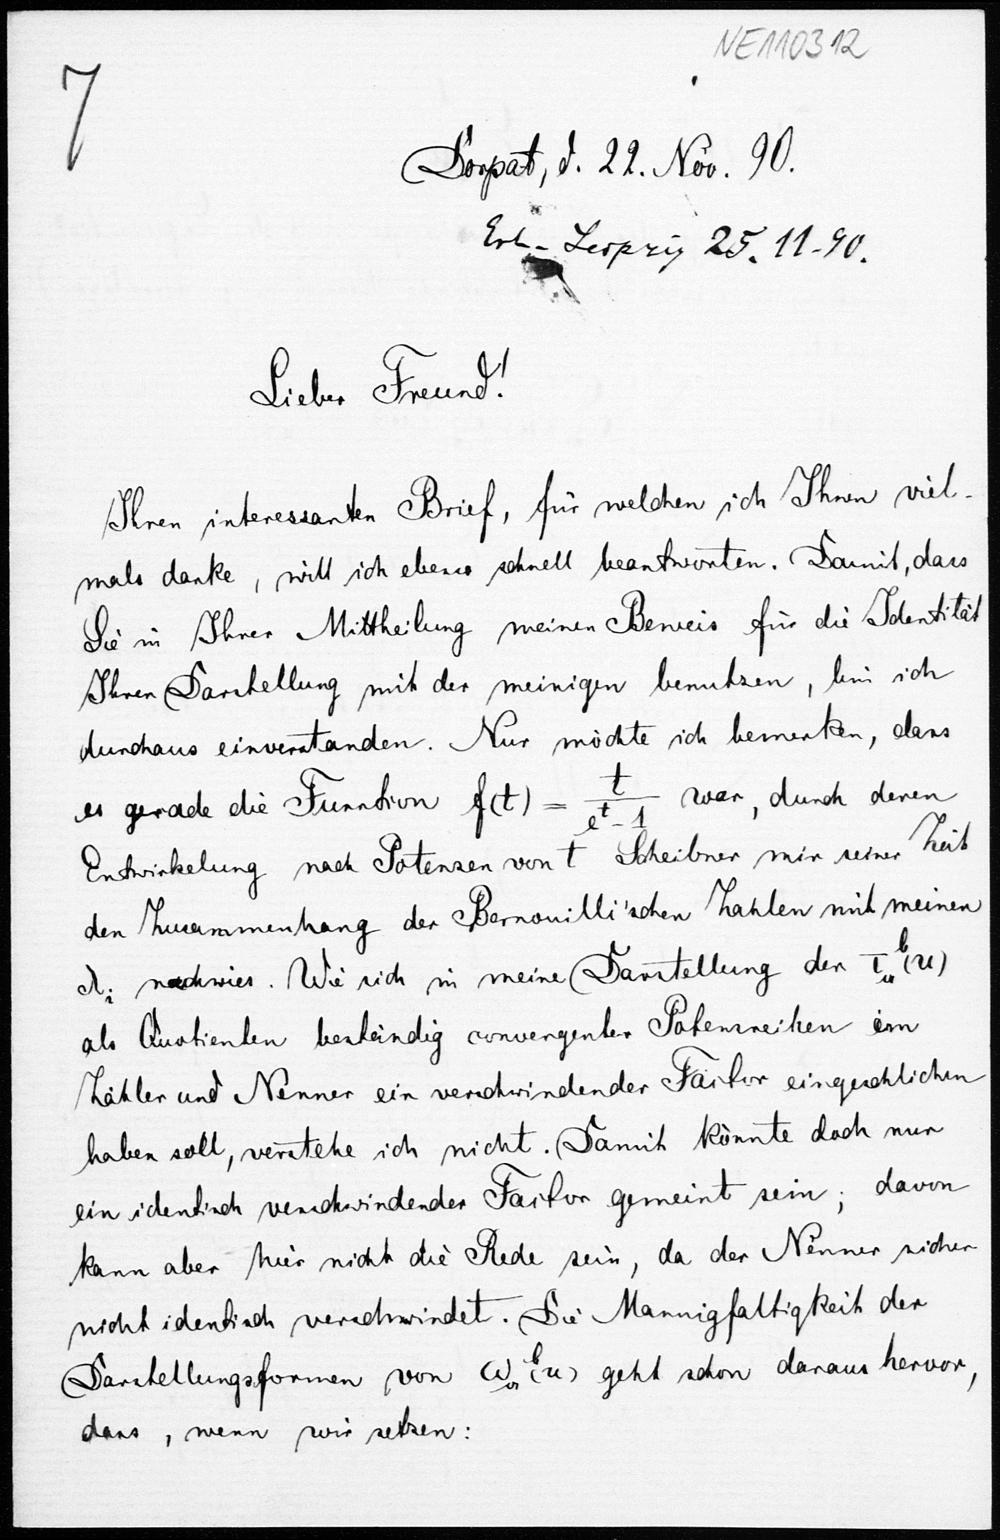 NE110312
7
Dorpat, d. 22. Nov. 90.
Erh. Leipzig 25. 11. 90.
Lieber Freund!
Ihren interessanten Brief, für welchen ich Ihnen viel-
mals danke, will ich ebenso schnell beantworten. Damit, dass
Sie in Ihrer Mittheilung meinen Beweis für die Identität
Ihrer Darstellung mit der meinigen benutzen, bin ich
durchaus einverstanden. Nur möchte ich bemerken, dass
es gerade die Function f(t) = t/(e^t - 1) war, durch deren
Entwickelung nach Potenzen von t Scheibner mir seiner Zeit
den Zusammenhang der Bernouilli'schen Zahlen mit meinen
λ_i nachwies. Wie sich in meine Darstellung der τ_a^b(u)
als Quotienten beständig convergenter Potenzreihen im
Zähler und Nenner ein verschwindender Factor eingeschlichen
haben soll, verstehe ich nicht. Damit könnte doch nur
ein identisch verschwindender Factor gemeint sein; davon
kann aber hier nicht die Rede sein, da der Nenner sicher
nicht identisch verschwindet. Die Mannigfaltigkeit der
Darstellungsformen von ω_a^b(u) geht schon daraus hervor,
dass, wenn wir setzen: